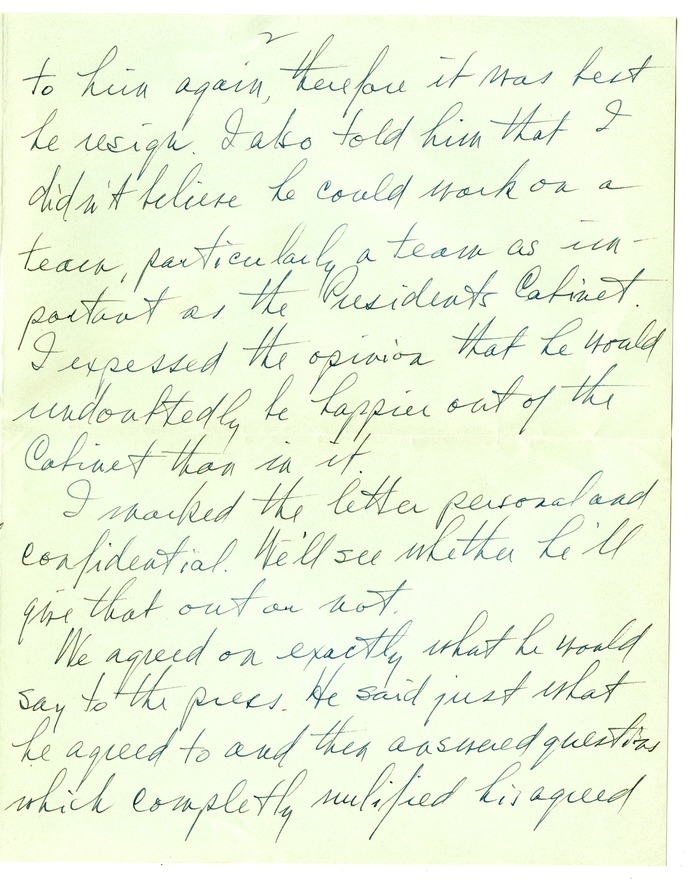 2
to him again, therefore it was best
he resign. I also told him that I
didn't believe he could work on a
team, particularly a team as im-
portant as the Presidents Cabinet.
I expressed the opinion that he would
undoubtedly be happier out of the
Cabinet than in it.
I marked the letter personal and
confidential. We'll see whether he'll
give that out or not.
We agreed on exactly what he would
say to the press. He said just what
he agreed to and then answered questions
which completly nulified his agreed